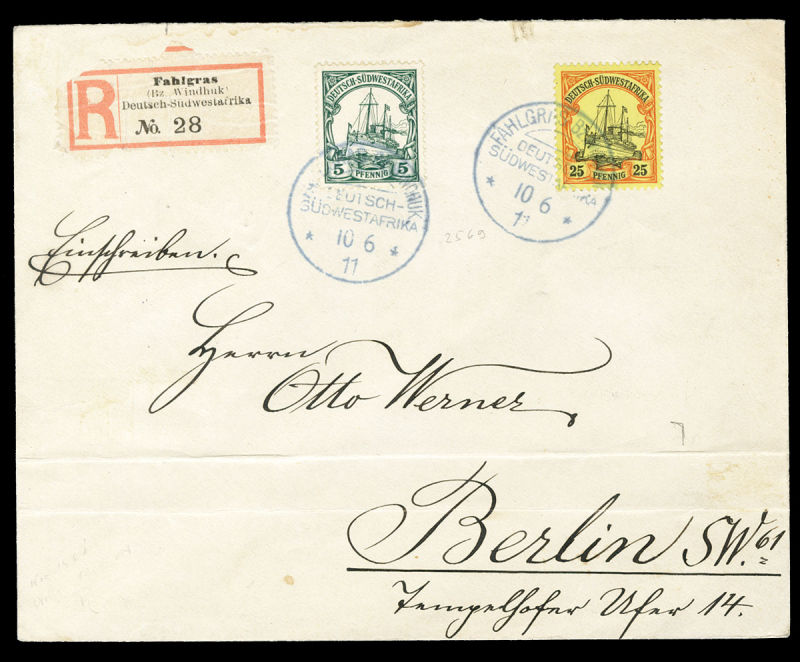 R
Fahlgras
(Bz. Windhuk)
Deutsch-Südwestafrika
No. 28
DEUTSCH-SÜDWESTAFRIKA
5 5
PFENNIG
DEUTSCH-
SÜDWESTAFRIKA
10 6
11
DEUTSCH-SÜDWESTAFRIKA
25 25
PFENNIG
DEUT
SÜDWESTAFRIKA
10 6
11
2569
Einschreiben.
Herrn
Otto Werner
Berlin SW. 61
Tempelhofer Ufer 14.